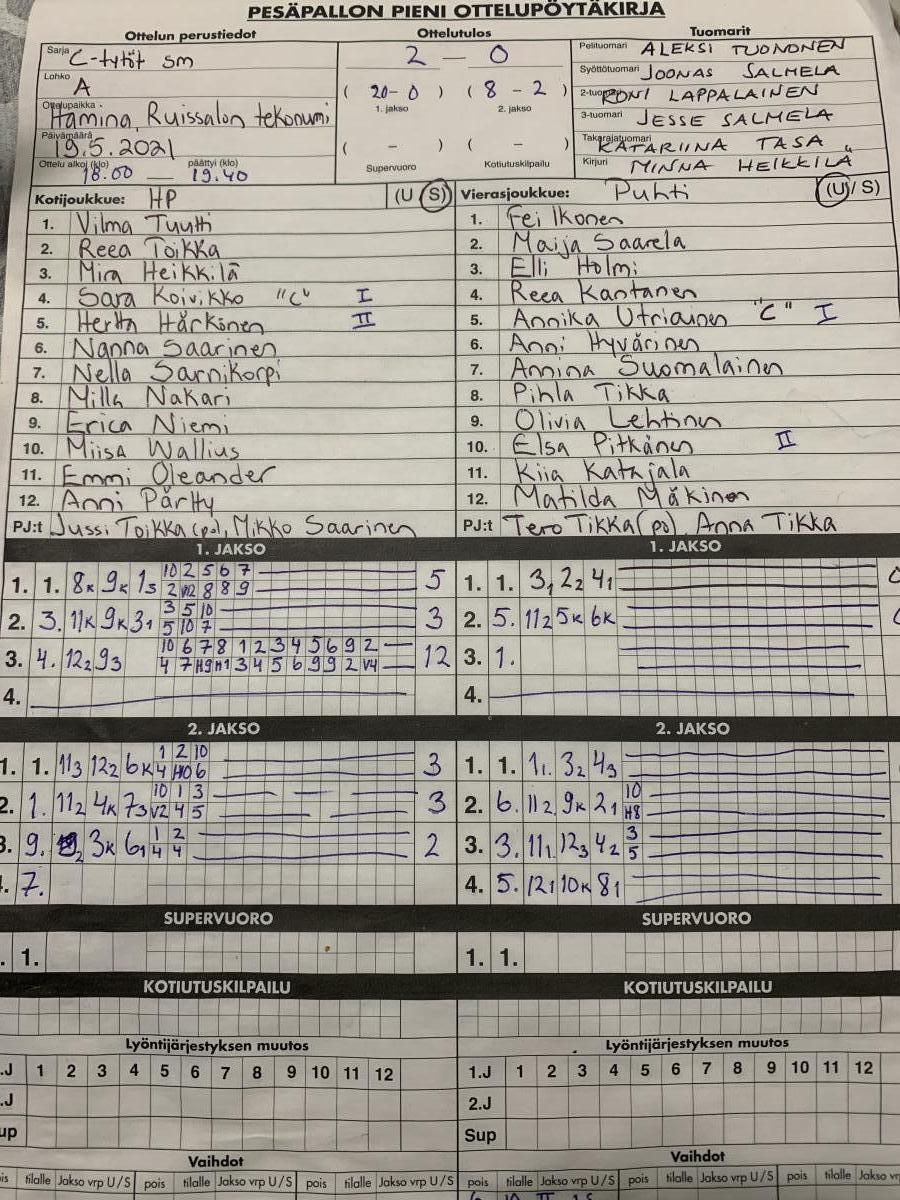 PESÄPALLON PIENI OTTELUPÖYTÄKIRJA
Ottelun perustiedot Ottelutulos Tuomarit
Sarja C-tytöt sm 2 — 0 Pelituomari ALEKSI TUONONEN
Lohko A ( 20-0 ) ( 8 - 2 ) Syöttötuomari JOONAS SALMELA
1. jakso 2. jakso 2-tuomari RONI LAPPALAINEN
Ottelupaikka Hamina, Ruissalon tekonurmi 3-tuomari JESSE SALMELA
Päivämäärä 19.5.2021 ( - ) ( - ) Takarajatuomari KATARIINA TASA
Ottelu alkoi (klo) 18.00 — päättyi (klo) 19.40 Supervuoro Kotiutuskilpailu Kirjuri MINNA HEIKKILÄ
Kotijoukkue: HP (U S) Vierasjoukkue: Puhti (U/ S)
1. Vilma Tuutti 1. Fei Ikonen
2. Reea Toikka 2. Maija Saarela
3. Mira Heikkilä 3. Elli Holmi
4. Sara Koivikko "C" I 4. Reea Kantanen
5. Hertta Härkönen II 5. Annika Utriainen "C" I
6. Nanna Saarinen 6. Anni Hyvärinen
7. Nella Sarnikorpi 7. Annina Suomalainen
8. Milla Nakari 8. Pihla Tikka
9. Erica Niemi 9. Olivia Lehtinen
10. Miisa Wallius 10. Elsa Pitkänen II
11. Emmi Oleander 11. Kiia Katajala
12. Anni Pärtty 12. Matilda Mäkinen
PJ:t Jussi Toikka (po), Mikko Saarinen PJ:t Tero Tikka (po) Anna Tikka
1. JAKSO 1. JAKSO
10 2 5 6 7
1. 1. 8K 9K 13 2 8 8 9 5 1. 1. 31 22 41
3 5 10
2. 3. 11K 9K 31 5 10 7 3 2. 5. 112 5K 6K
10 6 7 8 1 2 3 4 5 6 9 2
3. 4. 122 93 4 7 H9 H1 3 4 5 6 9 9 2 V4 12 3. 1.
4. 4.
2. JAKSO 2. JAKSO
1 2 10
1. 1. 113 122 6K 4 H0 6 3 1. 1. 11 32 43
10 1 3 10
2. 1. 112 4K 73 V2 4 5 3 2. 6. 112 9K 21 H8
1 2 3
3. 9. 3K 61 4 4 2 3. 3. 111 123 42 5
. 7. 4. 5. 121 10K 81
SUPERVUORO SUPERVUORO
. 1. 1. 1.
KOTIUTUSKILPAILU KOTIUTUSKILPAILU
Lyöntijärjestyksen muutos Lyöntijärjestyksen muutos
.J 1 2 3 4 5 6 7 8 9 10 11 12 1.J 1 2 3 4 5 6 7 8 9 10 11 12
.J 2.J
up Sup
Vaihdot Vaihdot
is tilalle Jakso vrp U/S pois tilalle Jakso vrp U/S pois tilalle Jakso vrp U/S pois tilalle Jakso vrp U/S pois tilalle Jakso vrp U/S pois tilalle Jakso vrp